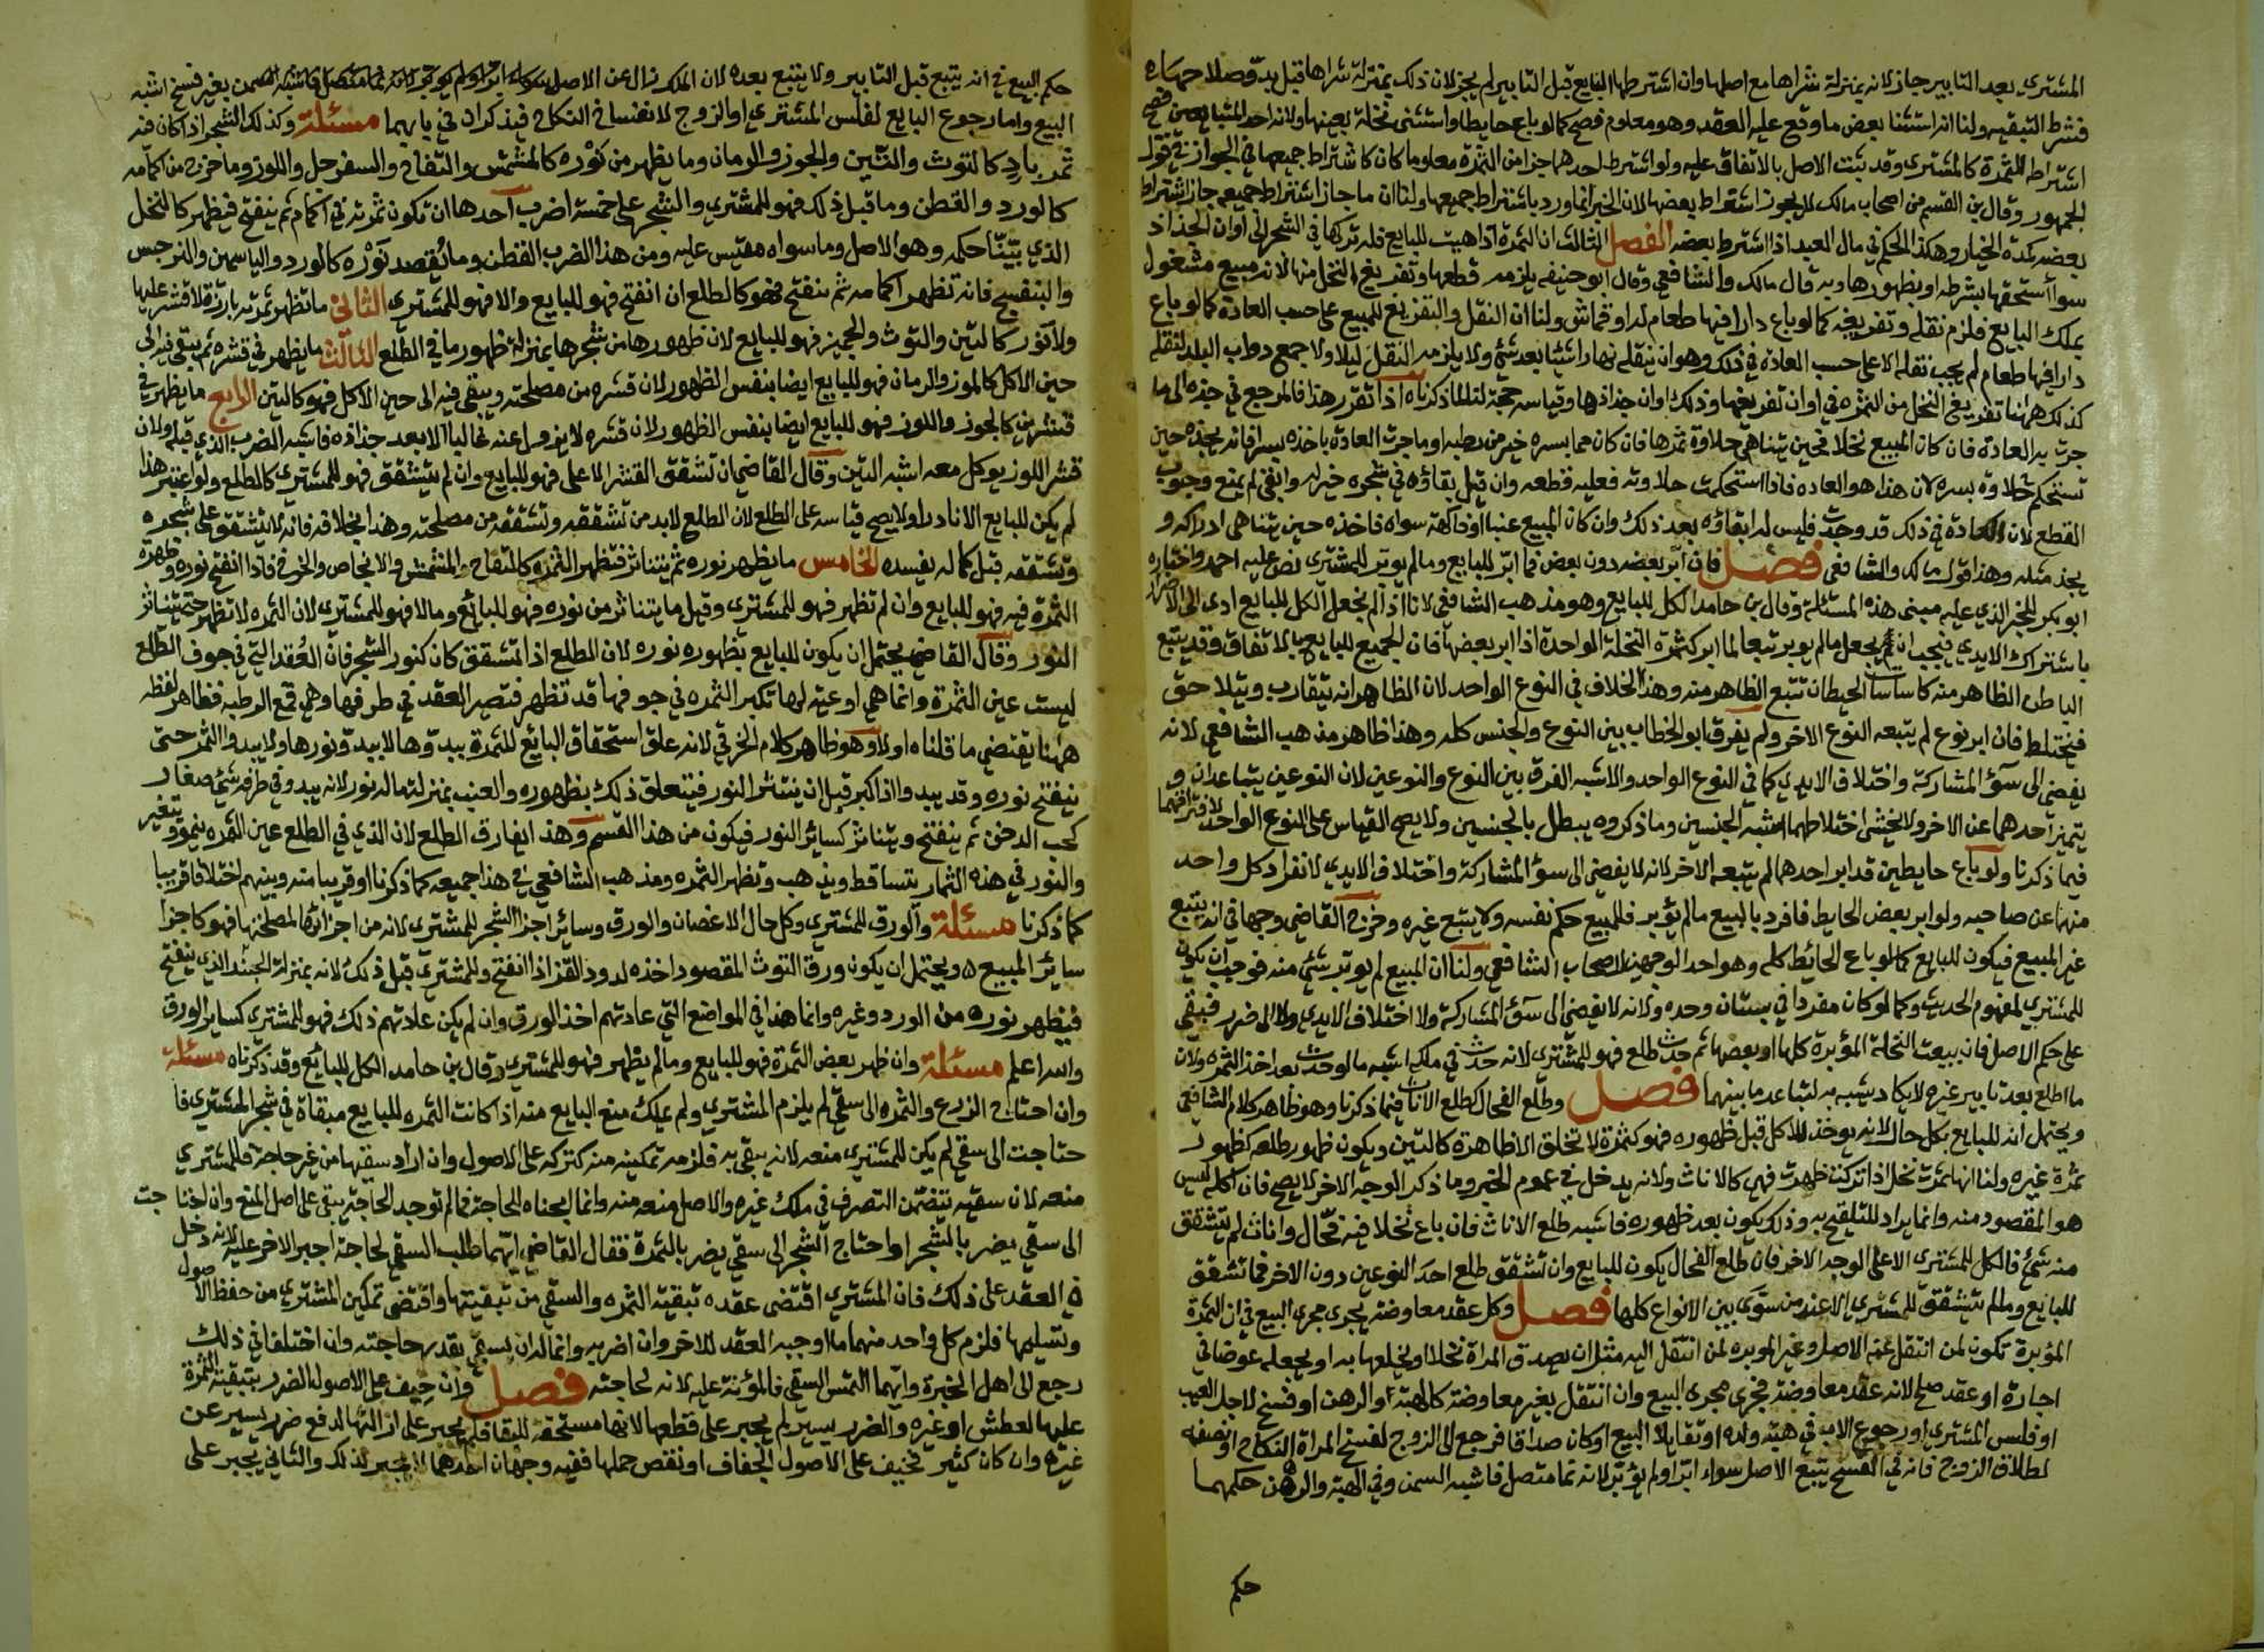 المشتري بعد التابير جاز لانه بمنزلة شراها مع اصلها وان اشترطها البايع قبل التابير لم يجز لان ذلك بمنزلة شراها قبل بدو صلاحها
فشرط التبقيه ولنا انه استثنا بعض ما وقع عليه العقد وهو معلوم فصح كما لو باع حايطا واستثنى نخلة بعينها ولانه احد المتبايعين فصح
اشتراطه للثمرة كالمشتري وقد ثبت الاصل بالاتفاق عليه ولو اشترط احدهما جزا من الثمرة معلوما كان كاشتراط جميعها في الجواز في قول
الجمهور وقال بن القسم من اصحاب مالك لا يجوز اشتراط بعضها لان الخبر انما ورد باشتراط جميعها ولنا ان ما جاز اشتراط جميعه جاز اشتراط
بعضه كمدة الخيار وهكذا الحكم في مال العبد اذا اشترط بعضه الفصل الثالث ان الثمرة اذا بقيت للبايع فله تركها في الشجر الى اوان الجذاذ
سوا استحقها بشرطه او بظهورها وبه قال مالك والشافعي وقال ابو حنيفه يلزمه قطعها وتفريغ النخل منها لانه مبيع مشغول
بملك البايع فلزم نقله وتفريغه كما لو باع دارا فيها طعام له او قماش ولنا ان النقل والتفريغ للمبيع على حسب العادة كما لو باع
دارا فيها طعام لم يجب نقله الا على حسب العادة في ذلك وهو ان ينقله نهارا شيئا بعد شي ولا يلزمه النقل ليلا ولا جمع دواب البلد لنقله
كذلك ههنا تفريغ النخل من الثمره في اوان تفريغها وذلك اوان جذاذها وقياسه حجة لنا لما ذكرناه اذا تقرر هذا فالمرجع في جذه الى ما
جرت به العادة فان كان المبيع نخلا فحين يتناهى حلاوة ثمرها فان كان مما بسره خير من رطبه او ما جرت العادة باخذه بسرا فانه يجذه حين
تستحكم حلاوة بسره لان هذا هو العاده فاذا استحكمت حلاوته فعليه قطعه وان قيل بقاؤه في شجره خير له وابقى لم يمنع وجوب
القطع لان العادة في ذلك قد وجدت فليس له ابقاؤه بعد ذلك وان كان المبيع عنبا او فاكهة سواه فاخذه حين يتناهى ادراكه و
يجذ مثله وهذا قول مالك والشافعي فصل فان ابر بعضه دون بعض فما ابر للبايع وما لم يوبر للمشتري نص عليه احمد واختاره
ابو بكر للخبر الذي عليه مبنى هذه المسئلة وقال بن حامد الكل للبايع وهو مذهب الشافعي لانا اذا لم نجعل الكل للبايع ادى الى الاضرار
باشتراك الايدي فيجب ان يجعل ما لم يوبر تبعا لما ابر كثمرة النخلة الواحدة اذا ابر بعضها فان الجميع للبايع بالاتفاق وقد يتبع
الباطن الظاهر منه كاساسات الحيطان تتبع الظاهر منه وهذا الخلاف في النوع الواحد لان الظاهر انه يتقارب ويتلاحق
فيختلط فان ابر نوع لم يتبعه النوع الاخر ولم يفرق ابو الخطاب بين النوع والجنس كله وهذا ظاهر مذهب الشافعي لانه
يفضى الى سو المشاركة واختلاف الايدي كما في النوع الواحد والاشبه الفرق بين النوع والنوعين لان النوعين يتباعدان و
يتميز احدهما عن الاخر ولا يخشى اختلاطهما اشبه الجنسين وما ذكروه يبطل بالجنسين ولا يصح القياس على النوع الواحد لافتراقهما
فيما ذكرنا ولو باع حايطين قد ابر احدهما لم يتبعه الاخر لانه لا يفضى الى سو المشاركة واختلاف الايدي لانفراد كل واحد
منهما عن صاحبه ولو ابر بعض الحايط فافرد بالبيع ما لم يؤبر فللمبيع حكم نفسه ولا يتبع غيره وخرج القاضي وجها في انه يتبع
غير المبيع فيكون للبايع كما لو باع الحائط كله وهو احد الوجهين لاصحاب الشافعي ولنا ان المبيع لم يوبر شي منه فوجب ان يكون
للمشتري لمفهوم الحديث وكما لو كان مفردا في بستان وحده ولانه لا يفضى الى سو المشاركة ولا اختلاف الايدي ولا الى ضرر فبقي
على حكم الاصل فان بيعت النخلة المؤبرة كلها او بعضها ثم حدث طلع فهو للمشتري لانه حدث في ملكه اشبه ما لو حدث بعد اخذ الثمر ولان
ما اطلع بعد تابير غيره لا يكاد يشتبه به لتباعد ما بينهما فصل وطلع الفحال كطلع الاناث فيما ذكرنا وهو ظاهر كلام الشافعي
ويحتمل انه للبايع بكل حال لانه يوخذ للاكل قبل ظهوره فهو كثمرة لا تخلق الا ظاهرة كالتين ويكون ظهور طلعه كظهور
ثمرة غيره ولنا انها ثمرة نخل اذا تركت ظهرت فهي كالاناث ولانه يدخل في عموم الخبر وما ذكر للوجه الاخر لا يصح فان اكله ليس
هو المقصود منه وانما يراد للتلقيح به وذلك يكون بعد ظهوره فاشبه طلع الاناث فان باع نخلا فيه فحال واناث لم يتشقق
منه شئ فالكل للمشترى الا على الوجه الاخر فان طلع الفحال يكون للبايع وان تشقق طلع احد النوعين دون الاخر فما تشقق
للبايع وما لم يتشقق للمشتري الا عند من سوى بين الانواع كلها فصل وكل عقد معاوضة يجرى مجرى البيع في ان الثمرة
المؤبرة تكون لمن انتقل عنه الاصل وغير الموبره لمن انتقل اليه مثل ان يصدق المراة نخلا او يخلعها به او يجعله عوضا في
اجارة او عقد صلح لانه عقد معاوضة فجرى مجرى البيع وان انتقل بغير معاوضة كالهبة والرهن او فسخ لاجل العيب
او فلس المشتري او رجوع الاب في هبته ولده او تقايلا البيع او كان صداقا فرجع الى الزوج لفسخ المراة النكاح او نصفه
لطلاق الزوج فانه في الفسخ يتبع الاصل سواء ابر او لم يؤبر لانه نما متصل فاشبه السمن وفي الهبة والرهن حكمهما
حكم
حكم البيع في انه يتبع قبل التابير ولا يتبع بعده لان الملك زال عن الاصل بغير فسخ اشبه
البيع واما رجوع البايع لفلس المشتري او الزوج لانفساخ النكاح فيذكران في بابهما مسئلة وكذلك الشجر اذا كان فيه
ثمر باد كالتوث والتين والجوز والرمان وما يظهر من نوره كالمشمش والتفاح والسفرجل واللوز وما خرج من اكمامه
كالورد والقطن وما قبل ذلك فهو للمشتري والشجر على خمسة اضرب احدها ان تكون ثمرته في اكمام ثم ينفتح فيظهر كالنخل
الذي بينا حكمه وهو الاصل وما سواه مقيس عليه ومن هذا الضرب القطن وما يقصد نوره كالورد والياسمين والنرجس
والبنفسج فانه تظهر اكمامه ثم ينفتح فهو كالطلع ان انفتح فهو للبايع والا فهو للمشتري الثاني ما تظهر ثمرته بارزة لا قشر عليها
ولا نور كالتين والتوث والجميز فهو للبايع لان ظهورها من شجرها بمنزلة ظهور ما في الطلع الثالث ما يظهر في قشره ثم يبقى فيه الى
حين الاكل كالموز والرمان فهو للبايع ايضا بنفس الظهور لان قشره من مصلحته ويبقى فيه الى حين الاكل فهو كالتين الرابع ما يظهر في
قشرين كالجوز واللوز فهو للبايع ايضا بنفس الظهور لان قشره لا يزول عنه غالبا الا بعد جذاذه فاشبه الضرب الذي قبله ولان
قشر اللوز يوكل معه اشبه التين وقال القاضي ان تشقق القشر الاعلى فهو للبايع وان لم يتشقق فهو للمشتري كالطلع ولو اعتبر هذا
لم يكن للبايع الا نادرا ولا يصح قياسه على الطلع لان الطلع لابد من تشققه وتشققه من مصلحته وهذا بخلافه فانه لا يتشقق على شجره
وتشققه قبل كماله يفسده الخامس ما يظهر نوره ثم يتناثر فتظهر الثمرة كالتفاح والمشمش والاجاص والخوخ فاذا انفتح نوره وظهرت
الثمرة فيه فهو للبايع وان لم تظهر فهو للمشتري وقيل ما يتناثر من نوره فهو للبائع وما لا فهو للمشتري لان الثمره لا تظهر حتى يتناثر
النور وقال القاضي يحتمل ان يكون للبايع بظهوره نوره لان الطلع اذا تشقق كان كنور الشجر فان العقد التي في جوف الطلع
ليست عين الثمرة وانما هي اوعيه لها تكبر الثمره في جوفها قد تظهر فتصير العقد في طرفها وهي قمع الرطبه فظاهر لفظه
ههنا يقتضي ما قلناه اولا وهو ظاهر كلام الخرقي لانه علق استحقاق البائع للثمرة ببدوها لا ببدو نورها ولا يبدوا الثمر حتى
ينفتح نوره وقد يبدوا اذا كبر قبل ان ينتثر النور فيتعلق ذلك بظهوره والعنب بمنزلة ما له نور لانه يبدو في طرفه شئ صغار
كحب الدخن ثم ينفتح ويتناثر كسائر النور فيكون من هذا القسم وهذا يفارق الطلع لان الذي في الطلع عين الثمره ينمو ويتغير
والنور في هذه الثمار يتساقط ويذهب وتظهر الثمره ومذهب الشافعي في هذا جميعه كما ذكرنا او قريبا منه وبينهم اختلافا قريبا
كما ذكرنا مسئلة والورق للمشتري وكل حال الاغصان والورق وسائر اجزا الشجر للمشتري لانه من اجزائها لمصلحتها فهو كاجزا
سائر المبيع ويحتمل ان يكون ورق التوث المقصود اخذه لدود القز اذا انفتح وللمشتري قبل ذلك لانه بمنزلة الجنبذ الذي ينفتح
فيظهر نوره من الورد وغيره وانما هذا في المواضع التي عادتهم اخذ الورق وان لم يكن عادتهم ذلك فهو للمشتري كساير الورق
والله اعلم مسئلة وان ظهر بعض الثمرة فهو للبايع وما لم يظهر فهو للمشتري وقال بن حامد الكل للبائع وقد ذكرناه مسئلة
وان احتاج الزرع والثمره الى سقي لم يلزم المشتري ولم يملك منع البايع منه اذا كانت الثمره للبايع مبقاة في شجر المشتري فا
حتاجت الى سقي لم يكن للمشتري منعه لانه يبقي به فلزمه تمكينه منه كتركه على الاصول وان اراد سقيها من غير حاجة فللمشتري
منعه لان سقيه يتضمن التصرف في ملك غيره والاصل منعه منه وانما ابحناه للحاجة فما لم توجد الحاجة يبقى على اصل المنع وان احتاجت
الى سقي يضر بالشجر او احتاج الشجر الى سقي يضر بالثمرة فقال القاضي ايهما طلب السقي لحاجة اجبر الاخر عليه لانه دخل
في العقد على ذلك فان المشتري اقتضى عقده تبقية الثمره والسقي من تبقيتها واقتضى تمكين المشتري من حفظ الاصول
وتسليمها فلزم كل واحد منهما ما اوجبه العقد للاخر وان اضر به وانما له ان يسقي بقدر حاجته وان اختلفا في ذلك
رجع الى اهل الخبرة وايهما التمس السقي فالمؤنة عليه لانه لحاجته فصل وان خيف على الاصول الضرر بتبقية الثمرة
عليها لعطش او غيره والضرر يسير لم يجبر على قطعها لانها مستحقه للبقا فلم يجبر على ازالتها لدفع ضرر يسير عن
غيره وان كان كثير فخيف على الاصول الجفاف او نقص حملها ففيه وجهان احدهما لا يجبر لذلك والثاني يجبر على